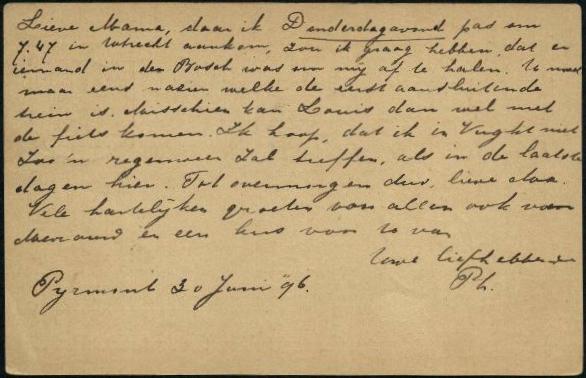 Lieve Mama, daar ik Donderdagavond pas om
7.47 in Utrecht aankom, zou ik graag hebben, dat er
iemand in den Bosch was om mij af te halen. U moet
maar eens nazien welke de eerst aansluitende
trein is. Misschien kan Louis dan wel met
de fiets komen. Ik hoop, dat ik in Vught niet
zoo'n regenweer zal treffen, als in de laatste
dagen hier. Tot overmorgen dus, lieve Ma.
Vele hartelijken groeten van allen ook van
en een kus voor U van
Uwe liefhebbende
Ph.
Pyrmont 30 Juni '96.